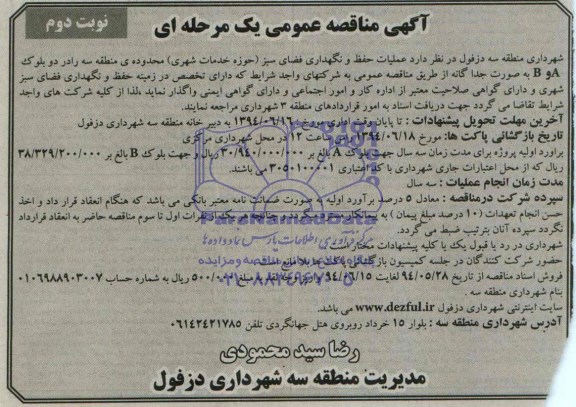 آگهی مناقصه عمومی یک مرحله ای
نوبت دوم
شهرداری منطقه سه دزفول در نظر دارد عملیات حفظ و نگهداری فضای سبز (حوزه خدمات شهری) محدوده ی منطقه سه رادر دو بلوک
Aو B به صورت جدا گانه از طریق مناقصه عمومی به شرکتهای واجد شرایط که دارای تخصص در زمینه حفظ و نگهداری فضای سبز
شهری و دارای گواهی صلاحیت معتبر از اداره کار و امور اجتماعی و دارای گواهی ایمنی واگذار نماید ،لذا از کلیه شرکت های واجد
شرایط تقاضا می گردد جهت دریافت اسناد به امور قراردادهای منطقه ۳ شهرداری مراجعه نمایند.
آخرین مهلت تحویل پیشنهادات : تا پایان وقت اداری مورخ ۱۳۹۴/۰۶/۱۶ به دبیر خانه منطقه سه شهرداری دزفول
تاریخ بازگشائی پاکت ها: مورخ ۱۳۹۴/۰۶/۱۸ راس ساعت ۱۲ در محل شهرداری مرکزی
براورد اولیه پروژه برای مدت زمان سه سال جهت بلوک A بالغ بر ۳۰/۹۴۰/۰۰۰/۰۰۰ ریال و جهت بلوک B بالغ بر ۳۸/۳۲۹/۲۰۰/۰۰۰
ریال که از محل اعتبارات جاری شهرداری با کد اعتباری ۳۰۵۰۱۰۰۰۰۱ می باشند.
مدت زمان انجام عملیات : سه سال
سپرده شرکت درمناقصه : معادل ۵ درصد برآورد اولیه به صورت ضمانت نامه معتبر بانکی می باشد که هنگام انعقاد قرار داد و اخذ
حسن انجام تعهدات (۱۰ درصد مبلغ پیمان) به پیمانکار مسترد میگردد و چنانچه هر یک از نفرات اول تا سوم مناقصه حاضر به انعقاد قرارداد
نگردد سپرده آنان بترتیب ضبط می گردد.
شهرداری در رد یا قبول یک یا کلیه پیشنهادات مختار است
حضور شرکت کنندگان در جلسه کمیسیون بازگشائی پاکت ها بلا مانع است
فروش اسناد مناقصه از تاریخ ۹۴/۰۵/۲۸ لغایت ۹۴/۰۶/۱۵ مبلغ ۵۰۰/۰۰۰ ریال به شماره حساب ۰۱۰۶۹۸۸۹۰۳۰۰۷
بنام شهرداری منطقه سه .
سایت اینترنتی شهرداری دزفول www.dezful.ir می باشد.
آدرس شهرداری منطقه سه : بلوار ۱۵ خرداد روبروی هتل جهانگردی تلفن ۰۶۱۴۲۴۲۱۷۸۵
رضا سید محمودی
مدیریت منطقه سه شهرداری دزفول
ParsNamadData
۰۲۱-۸۸۳۴۹۶۷۰-۵